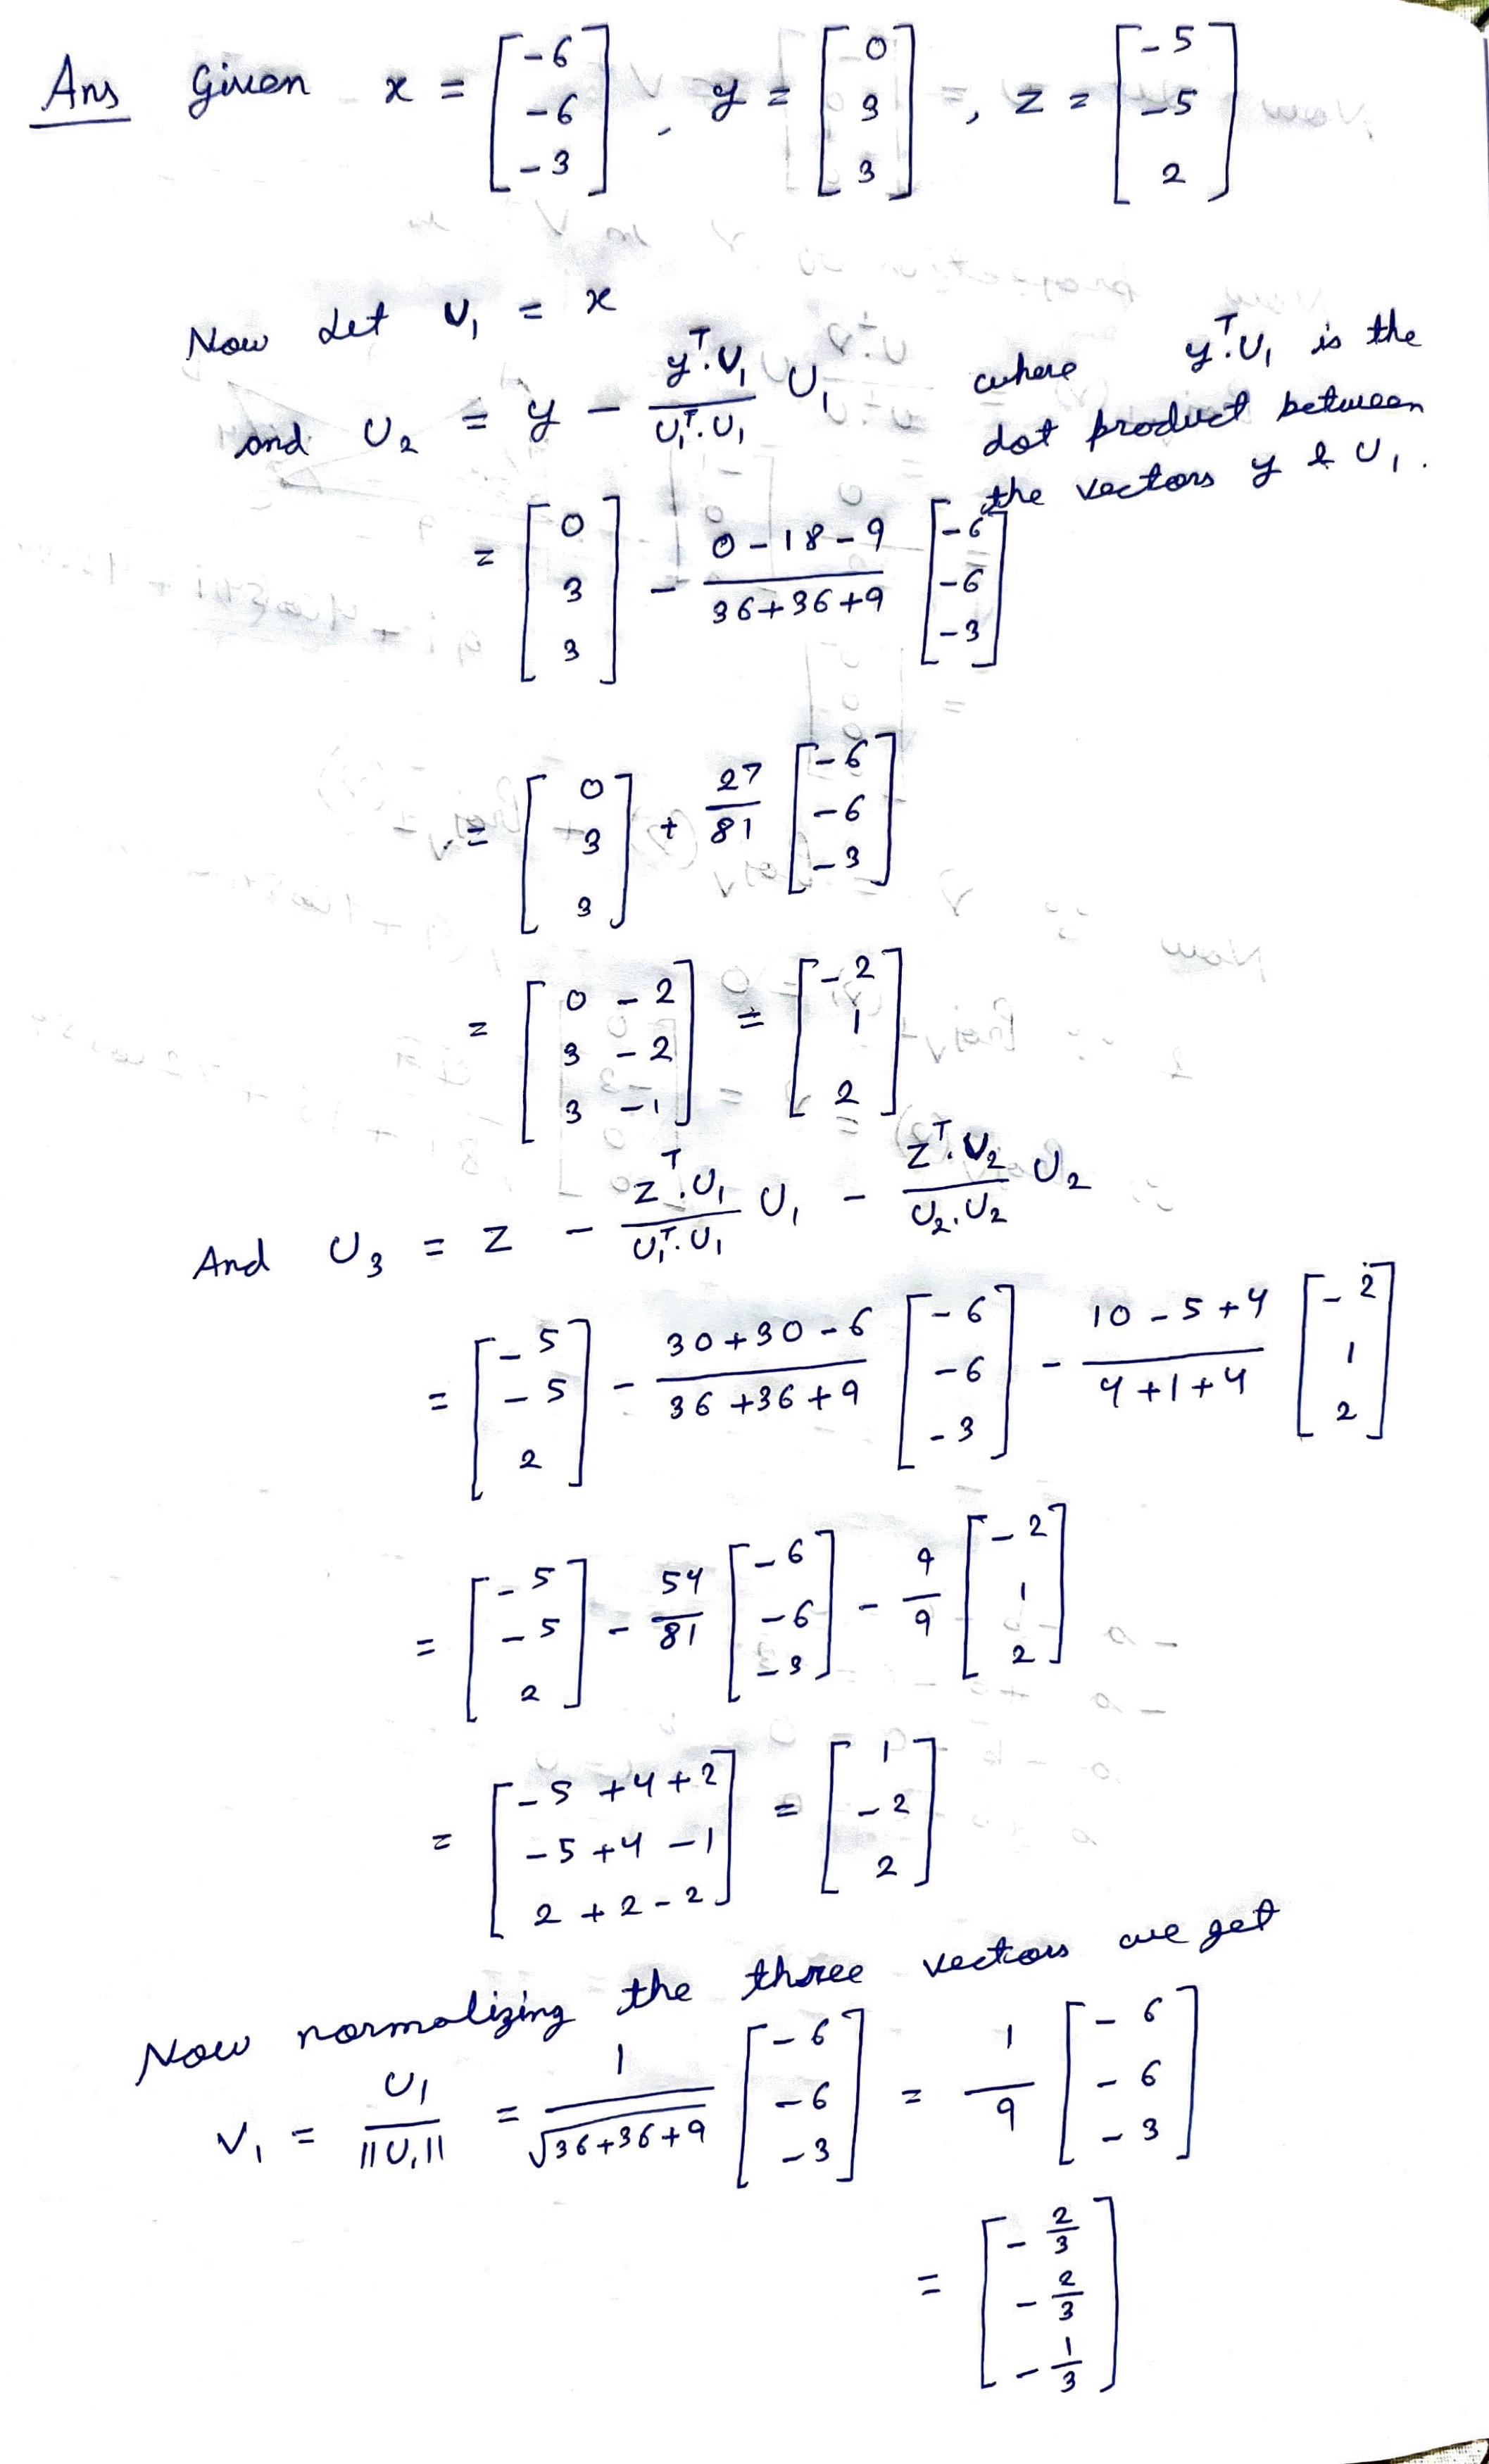 Ans Given x = [-6 -6 -3], y = [0 3 3], z = [-5 -5 2]
Now Let U₁ = x
and U₂ = y - (yᵀ.U₁)/(U₁ᵀ.U₁) U₁ where yᵀ.U₁ is the
dot product between
the vectors y & U₁.
= [0 3 3] - (0-18-9)/(36+36+9) [-6 -6 -3]
= [0 3 3] + 27/81 [-6 -6 -3]
= [0-2 3-2 3-1] = [-2 1 2]
And U₃ = z - (zᵀ.U₁)/(U₁ᵀ.U₁) U₁ - (zᵀ.U₂)/(U₂.U₂) U₂
= [-5 -5 2] - (30+30-6)/(36+36+9) [-6 -6 -3] - (10-5+4)/(4+1+4) [-2 1 2]
= [-5 -5 2] - 54/81 [-6 -6 -3] - 9/9 [-2 1 2]
= [-5+4+2 -5+4-1 2+2-2] = [1 -2 2]
Now normalizing the three vectors we get
V₁ = U₁/||U₁|| = 1/√(36+36+9) [-6 -6 -3] = 1/9 [-6 -6 -3]
= [-2/3 -2/3 -1/3]